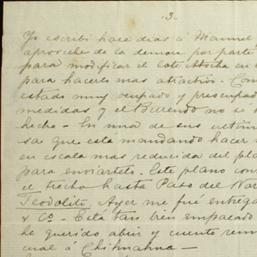 3.
Yo escribí hace dias á Manuel
aproveche de la demora por parte
para modificar el
para hacerlo mas atractivo. Com
estado muy ocupado y preocupad
medidas y el no se
hecho - En una de sus
sa que esta mandando hacer
en escala mas reducida del pla
para enviartelo. Este plano con
el trecho hasta Paso del Nor
Teodolito. Ayer me fué entrega
& Co. Está tan bien empacado
he querido abrir y cuento remi
cual á Chihuahua -